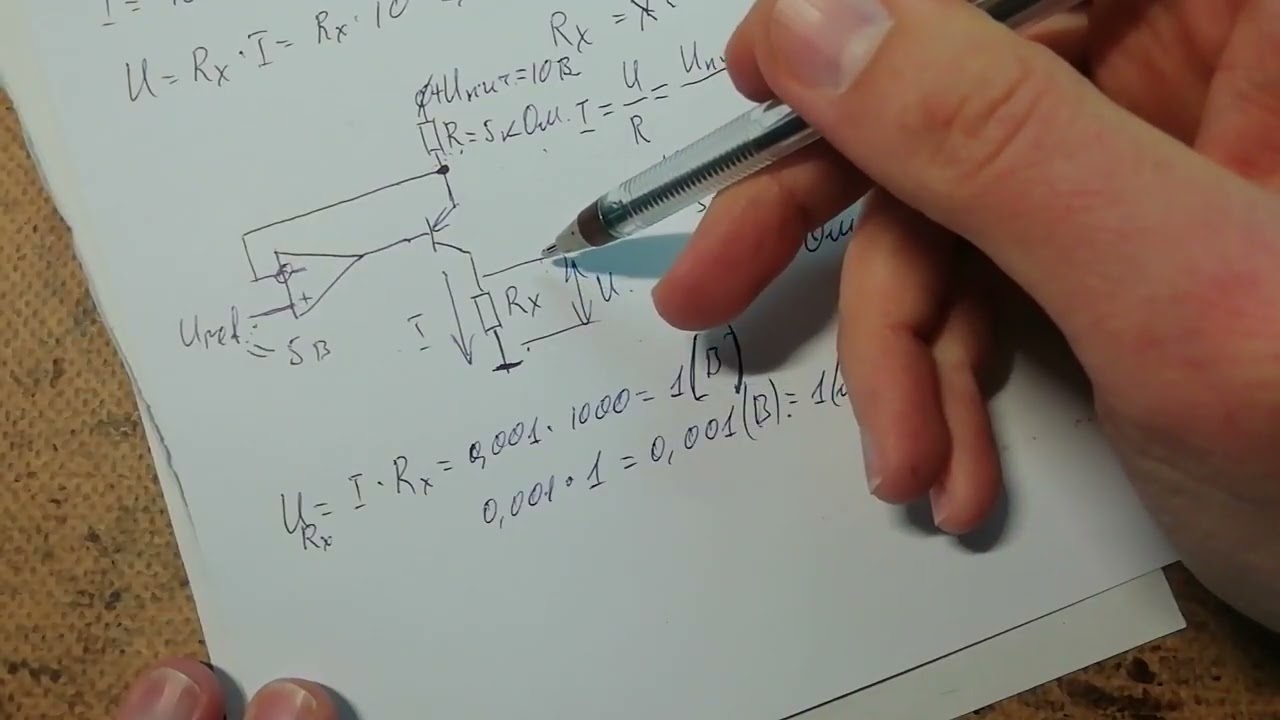 I =
U = Rx · I = Rx · 10
Rx =
+Uпит = 10В
R = 5 кОм. I = U/R = Uпи
Uref = 5В
+
I
Rx
U.
Ом
U Rx = I · Rx = 0,001 · 1000 = 1 (В)
0,001 · 1 = 0,001 (В) = 1 (